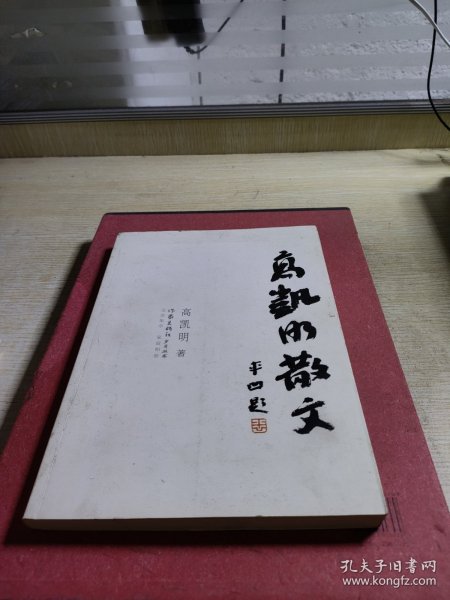 高凯明散文
平凹题
高凯明 著
作家出版社
孔夫子旧书网
www.kongfz.com